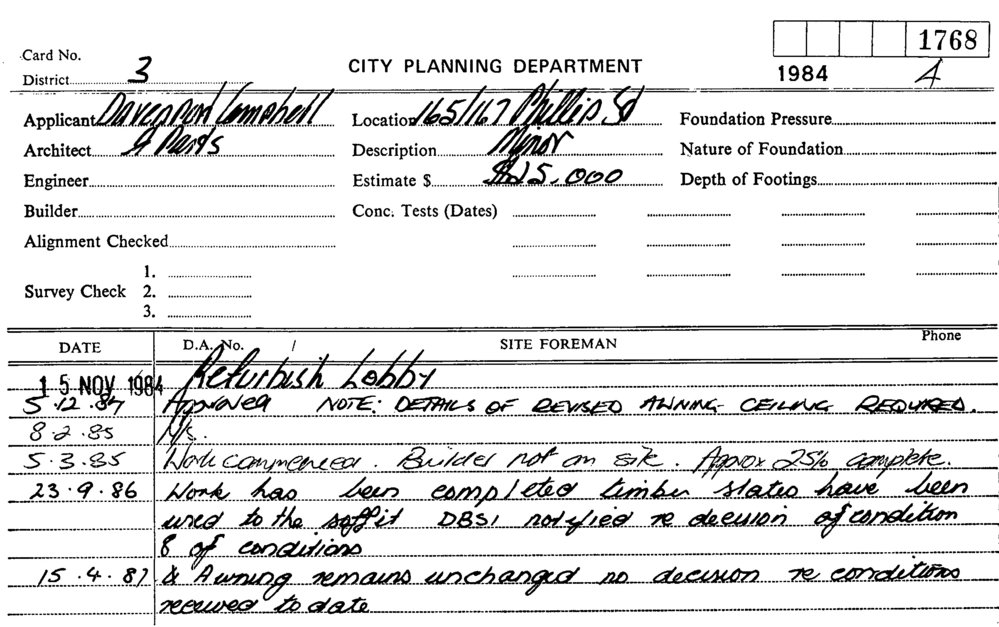 1768
Card No.
CITY PLANNING DEPARTMENT
1984 A
District 3
Applicant Davenport Campbell Location 165/167 Phillip St Foundation Pressure
Architect & Ptnrs Description Minor Nature of Foundation
Engineer Estimate $ 000 Depth of Footings
Builder Conc. Tests (Dates)
Alignment Checked
1.
Survey Check 2.
3.
DATE D.A. No. / SITE FOREMAN Phone
15 NOV 1984 Refurbish Lobby
5.12.84 Approved NOTE: DETAILS OF REVISED AWNING CEILING REQUIRED.
8.2.85 N/s.
5.3.85 Work commenced. Builder not on site. Approx 25% complete.
23.9.86 Work has been completed timber slates have been
used to the soffit DBSI notified re decision of condition
8 of conditions
15.4.87 & Awning remains unchanged no decision re conditions
received to date